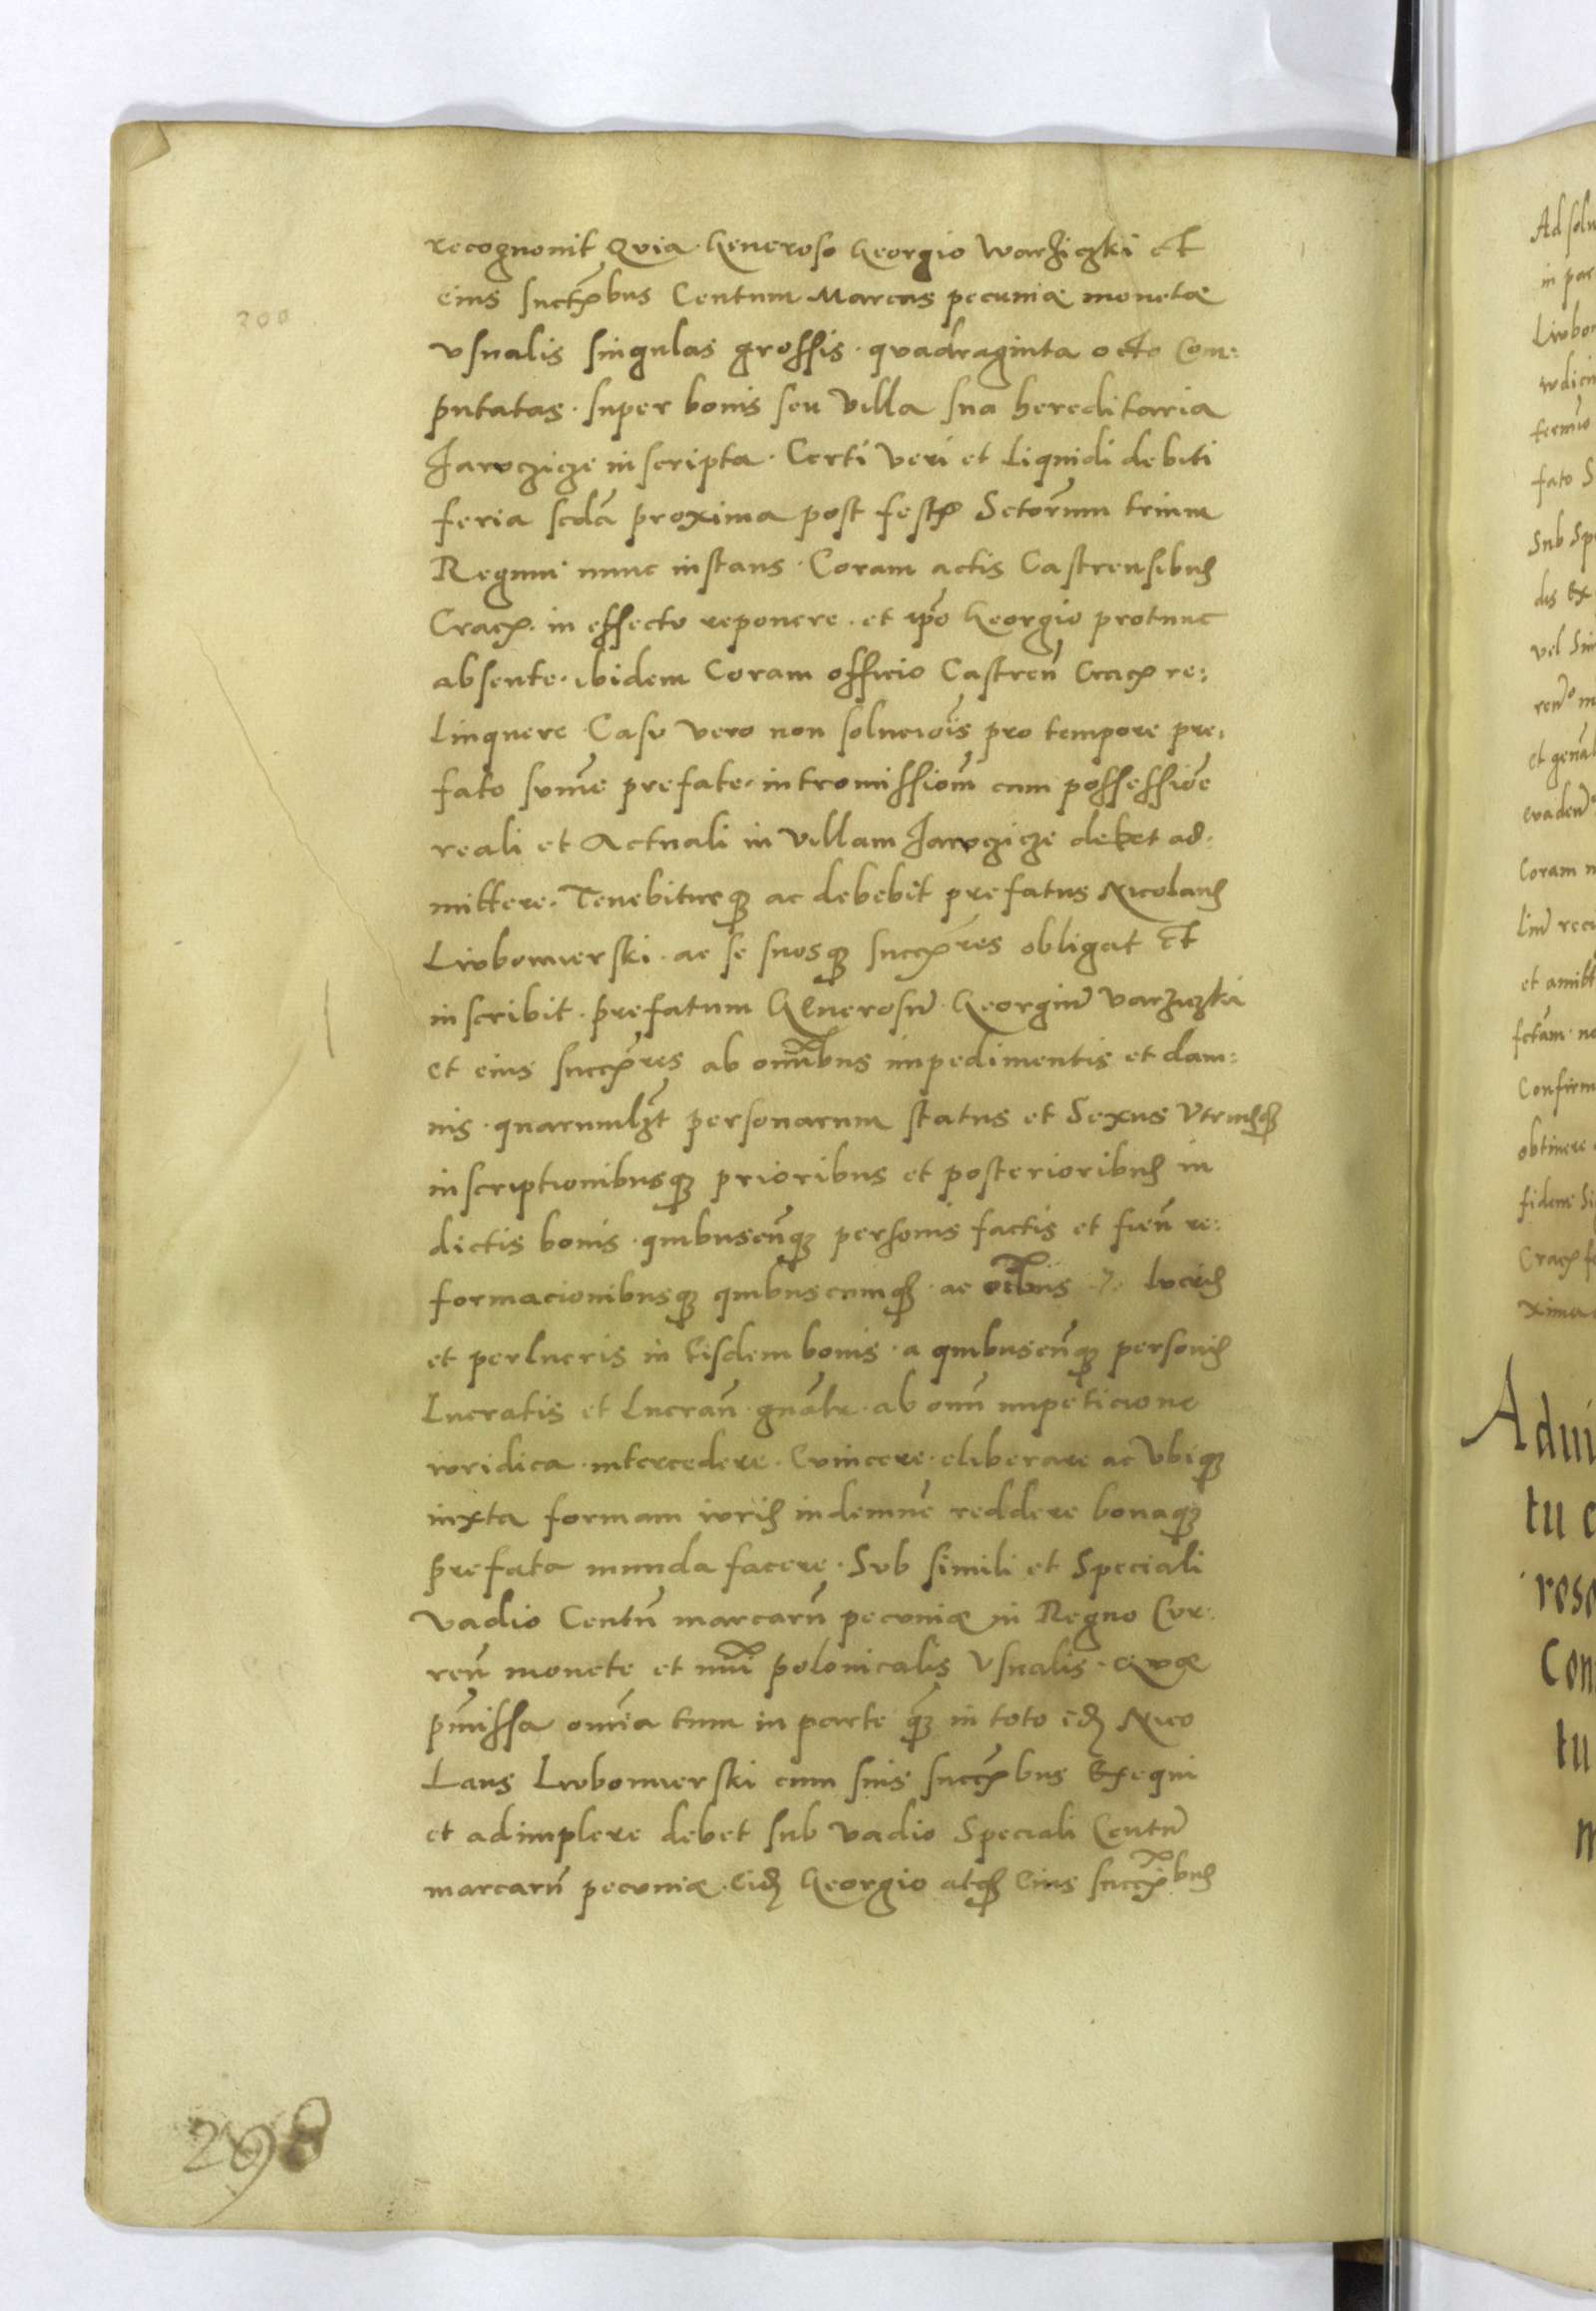 300
recognouit Quia Generoso Georgio Warziczki et
eius succ̃bus Centum Marcas pecuniæ monetæ
vsualis singulas grossis quadraginta octo Com:
putatas. super bonis seu Villa sua hereditaria
Jaroczicze inscripta. Certi Veri et Liquidi debiti
feria scdã proxima post fest Sctorum trium
Regum nunc instans. Coram actis Castrensibus
Crac. in effectu reponere. et ip̃o Georgio protunc
absente. ibidem Coram officio Castreñ Crac re:
Linquere Casu vero non soluciõis pro tempore pre:
fato sum̃e prefate. intromissiõm cum possessiõe
reali et Actuali in Villam Jaroczicze debet ad:
mittere. Tenebiturq; ac debebit prefatus Nicolaus
Lubomierski. ac se suosq; succ̃res obligat et
inscribit. prefatum Generosũ Georgiũ Varziczki
et eius succ̃res ab om̃ibus impedimentis et dam:
nis. quarumlꝫt personarum status et Sexus Vtriusq;
inscriptionibusq; prioribus et posterioribus in
dictis bonis. quibuscũq; personis factis et fieñ re:
formacionibusq; quibuscumq; ac lucris
et perlucris in Eisdem bonis. a quibuscũq; personis
Lucratis et Lucrañ gñalr. ab om̃i impeticione
iuridica. intercedere. Euincere. eliberare ac Vbiq;
iuxta formam iuris indemnẽ reddere bonaq;
prefata munda facere. Sub simili et Speciali
Vadio Centũ marcarũ pecuniæ in Regno Cur:
reñ monete et nũi polonicalis Vsualis. Quæ
p̃missa om̃ia tum in parte q; in toto id Nico
Laus Lubomierski cum suis succ̃bus Exequi
et adimplere debet sub vadio Speciali Centũ
marcarũ pecuniæ. Eid Georgio atq; Eius succ̃ibus
298
Ad solu
in par
Lubo
iudici
termio
fato S
Sub Spe
dis Ex
vel Sim
et genal
evaden
Coram n
et amitt
Confirm
obtinere
fidem Si
Crac fe
xima
Adui
tu c
rose
Con
tu